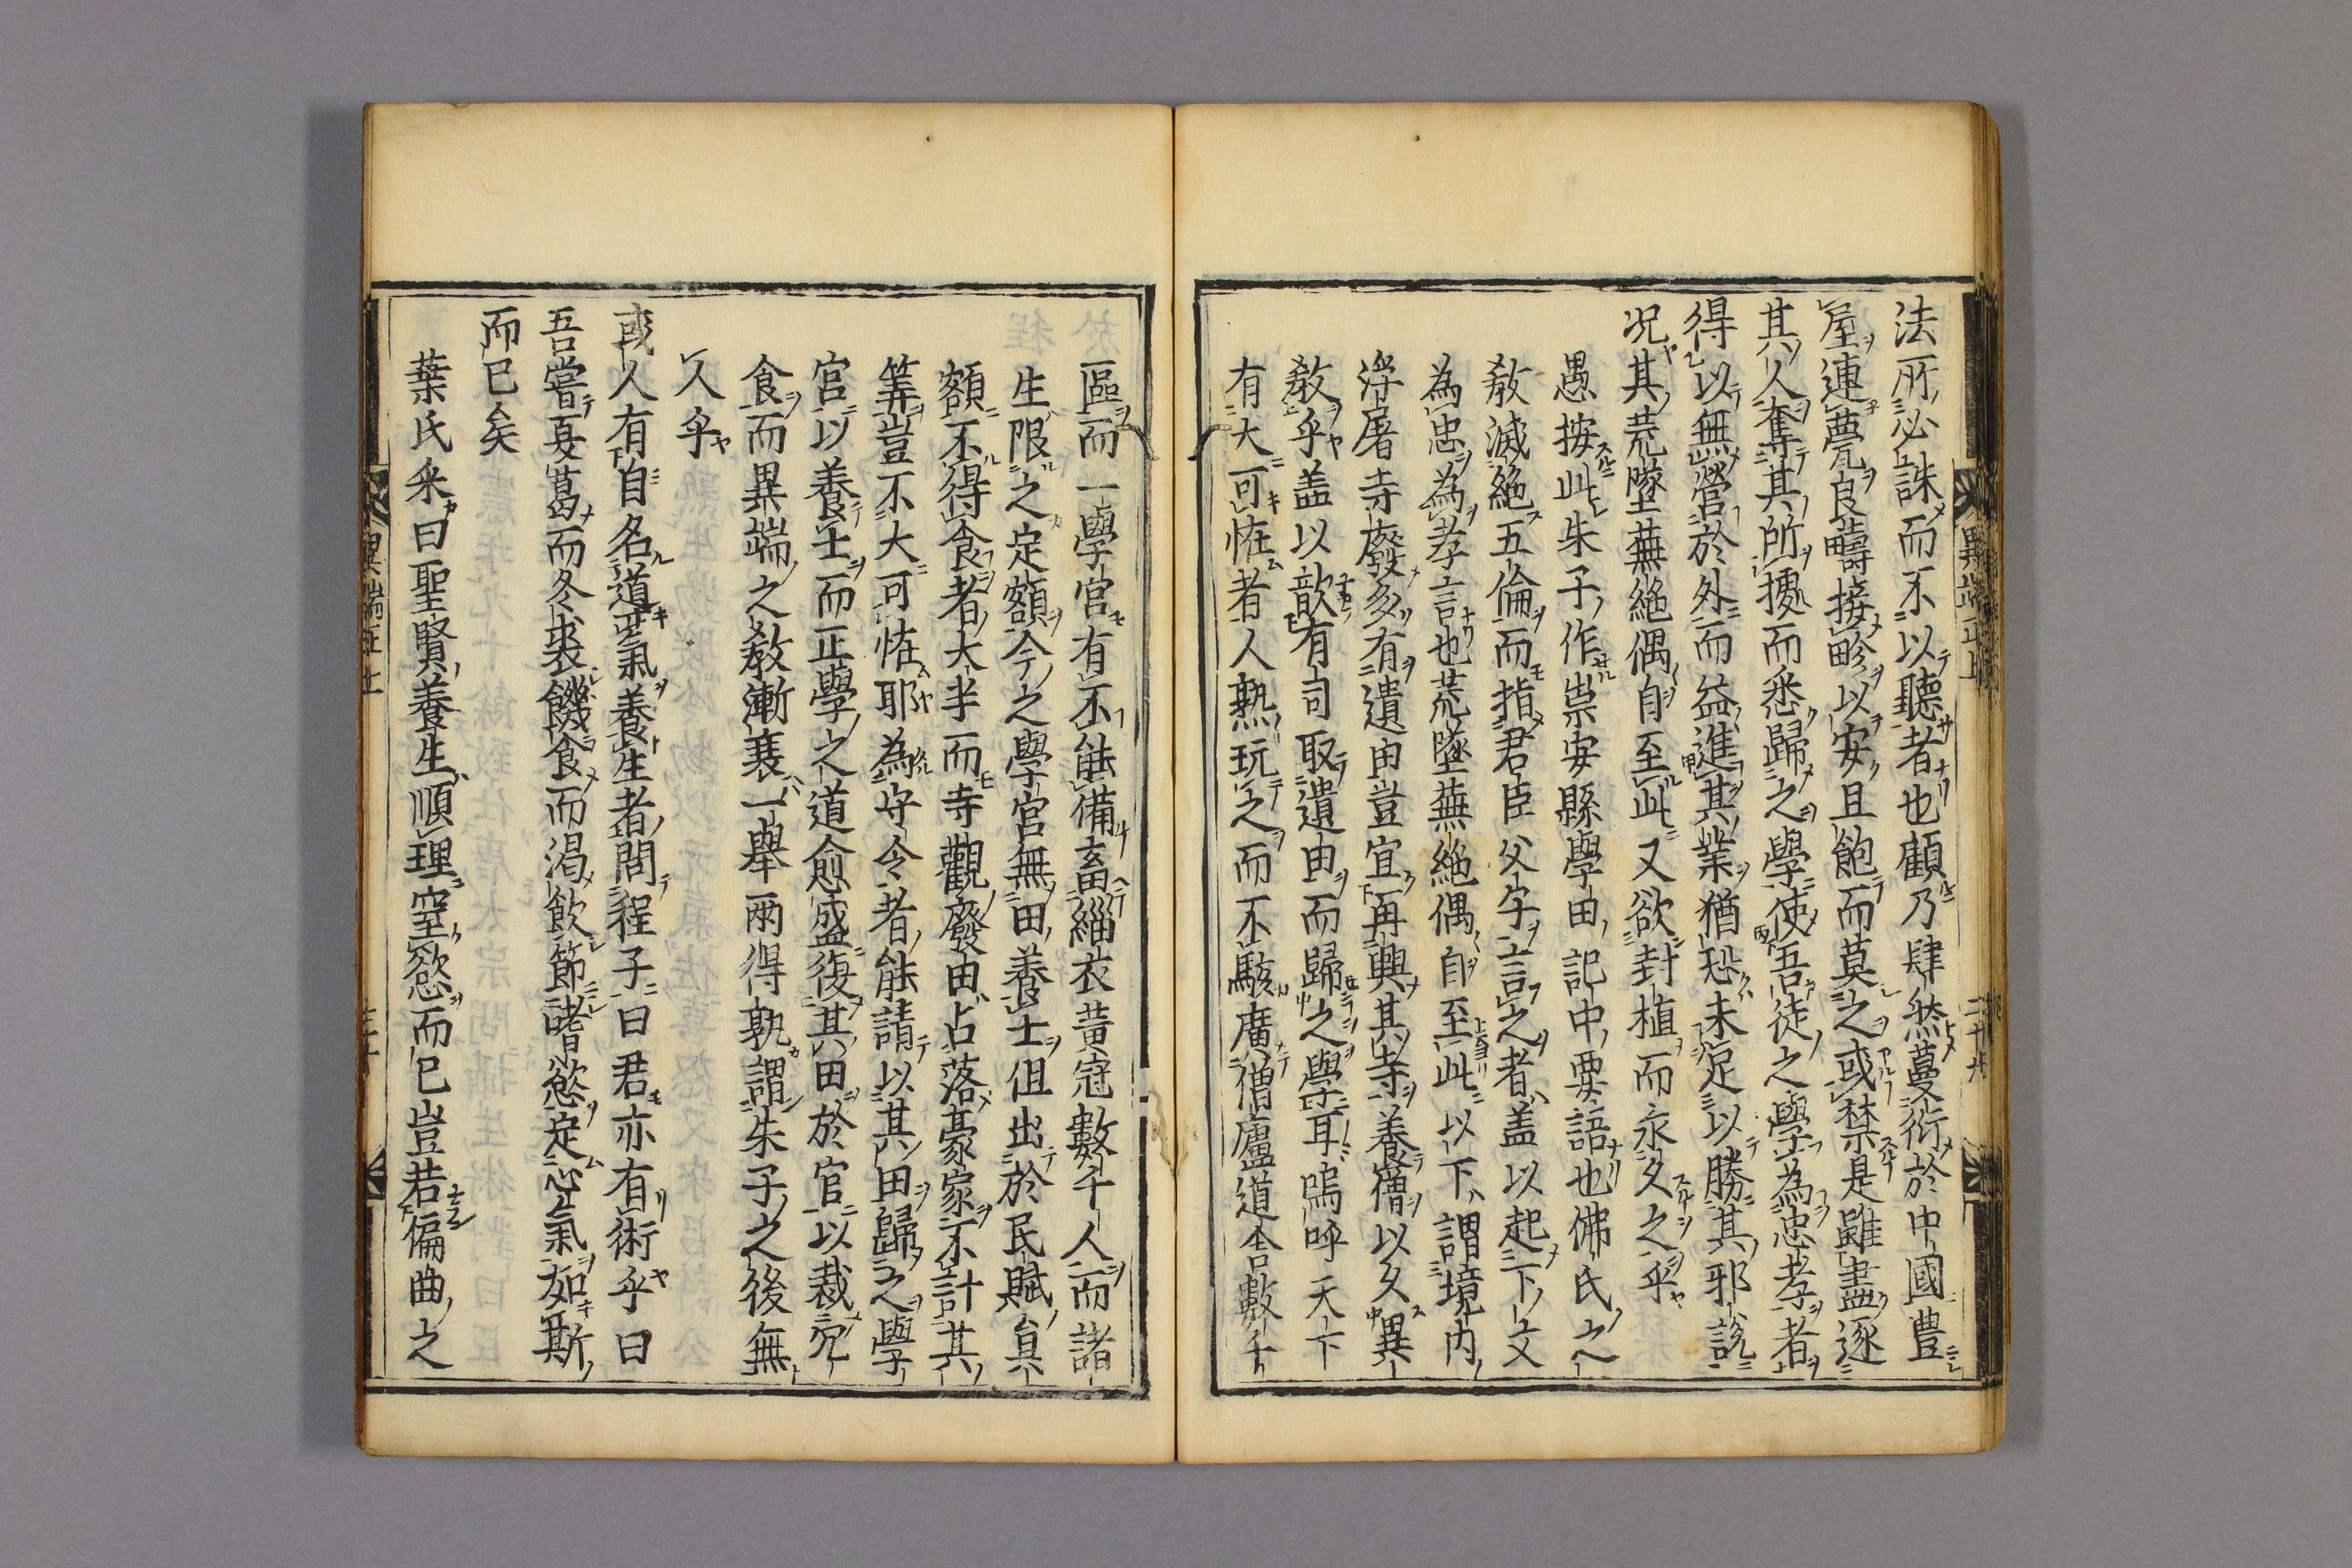 法所必誅而不以聽者也顧乃肆然蔓衍於中國豊
屋連甍良疇接畛以安且飽而莫之或禁是雖盡逐
其人奪其所擾而悉歸之學使吾徒之學為忠孝者
得以無營於外而益進其業猶恐未足以勝其邪說
况其荒墜蕪絶偶自至此又欲封植而永久之乎
愚按此朱子作崇安縣學田記中要語也佛氏之
教滅絶五倫而指君臣父子言之者盖以起下文
為忠為孝言也荒墜蕪絶偶自至此以下謂境内
浮屠寺廢多有遺田豈宜再興其寺養僧以久異
教乎盖以歆有司取遺田而歸之學耳嗚呼天下
有大可恠者人熟玩之而不駭廣僧廬道舎數千
區而一學官有不能備畜緇衣黃冠數千人而諸
生限之定額今之學官無田養士伹出於民賦員
額不得食者大半而寺觀廢田占落豪家不計其
筭豈不大可恠耶為守令者能請以其田歸之學
官以養士而正學之道愈盛復其田於官以裁冗
食而異端之教漸衰一舉兩得孰謂朱子之後無
人乎
或人有自名道氣養生者問程子曰君亦有術乎曰
吾嘗夏葛而冬裘饑食而渴飲節嗜慾定心氣如斯
而已矣
葉氏采曰聖賢養生順理窒慾而已豈若偏曲之
異端正上
二十九
異端正上